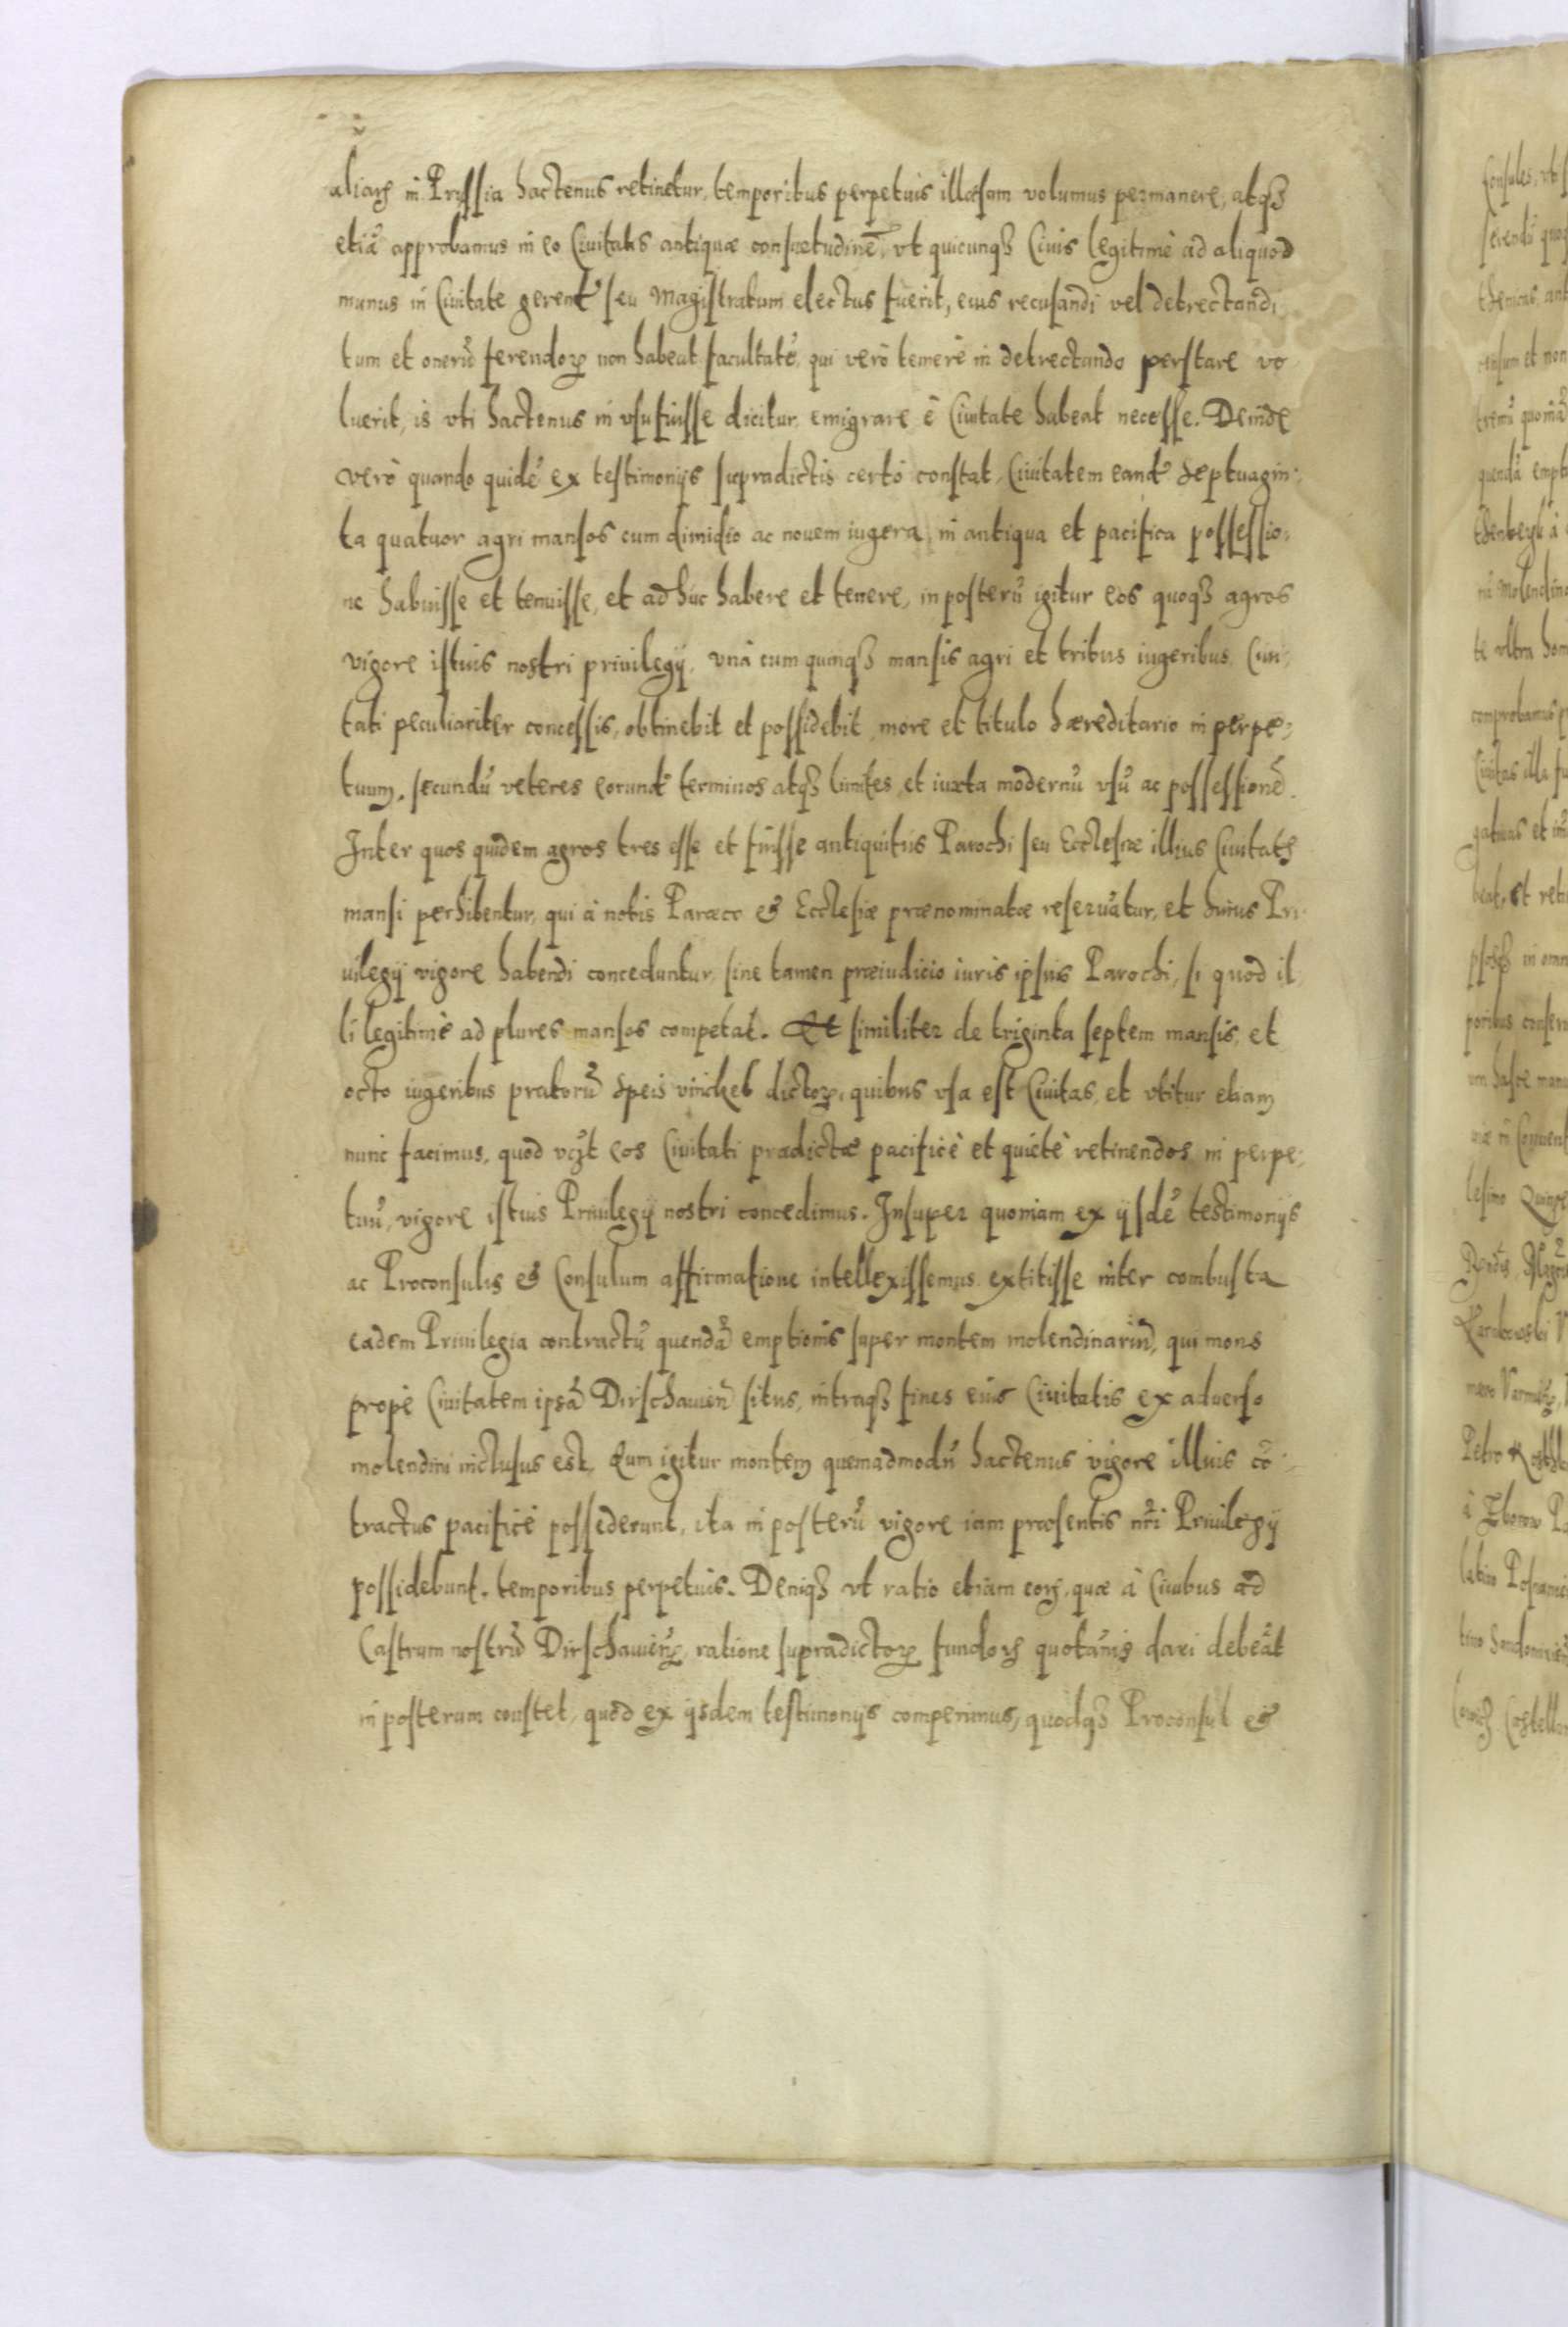 aliarꝝ in Prussia hactenus retinetur, temporibus perpetuis illæsam volumus permanere, atqꝫ
etiā approbamus in eo Ciuitatis antiquæ consuetudinē, vt quicunqꝫ Ciuis legitimè ad aliquod
munus in Ciuitate gerend̄ seu Magistratum electus fuerit, eius recusandi vel detrectandi
tum et onerū ferendoꝝ non habeat facultatē, qui verò temerè in detrectando perstare vo
luerit, is vti hactenus in vsu fuisse dicitur emigrare è Ciuitate habeat necesse. Deinde
verò quando quidē ex testimonijs supradictis certò constat, Ciuitatem eand̄ Septuagin-
ta quatuor agri mansos cum dimidio ac nouem iugera, in antiqua et pacifica possessio-
ne habuisse et tenuisse, et ad huc habere et tenere, in posterū igitur eos quoqꝫ agros
vigore istius nostri priuilegij, vnà cum quinqꝫ mansis agri et tribus iugeribus, Ciui-
tati peculiariter concessis, obtinebit et possidebit, more et titulo hæreditario in perpe-
tuum, secundū veteres eorund̄ terminos atqꝫ limites, et iuxta modernū vsū ac possessionē.
Inter quos quidem agros tres esse et fuisse antiquitus Parochi seu Ecclesiæ illius Ciuitatꝭ
mansi perhibentur, qui à nobis Paræco & Ecclesiæ prænominatæ reseruātur, et huius Pri-
uilegij vigore habendi conceduntur, sine tamen præiudicio iuris ipsius Parochi, si quod il
li legitimè ad plures mansos competat. Et similiter de triginta septem mansis, et
octo iugeribus pratorū Speis vinckel dictoꝝ, quibus vsa est Ciuitas, et vtitur etiam
nunc facimus, quod vꝫt eos Ciuitati prædictæ pacificè et quietè retinendos in perpe-
tuū, vigore istius Priuilegij nostri concedimus. Insuper quoniam ex ijsdē testimonijs
ac Proconsulis & Consulum affirmatione intellexissemus extitisse inter combusta
eadem Priuilegia contractū quendā emptionis super montem molendinariū, qui mons
propè Ciuitatem ipsā Dirschauien̄ situs, intraqꝫ fines eius Ciuitatis ex aduerso
molendini inclusus est, Eum igitur montem quemadmodū hactenus vigore illius cō-
tractus pacificè possederunt, ita in posterū vigore iam præsentis nr̄i Priuilegij
possidebunt, temporibus perpetuis. Deniqꝫ vt ratio etiam eorꝝ, quæ à Ciuibus ad
Castrum nostrū Dirschauien̄, ratione supradictoꝝ fundorꝝ quotannis dari debeāt
in posterum constet, quod ex ijsdem testimonijs comperimus, quodqꝫ Proconsul &